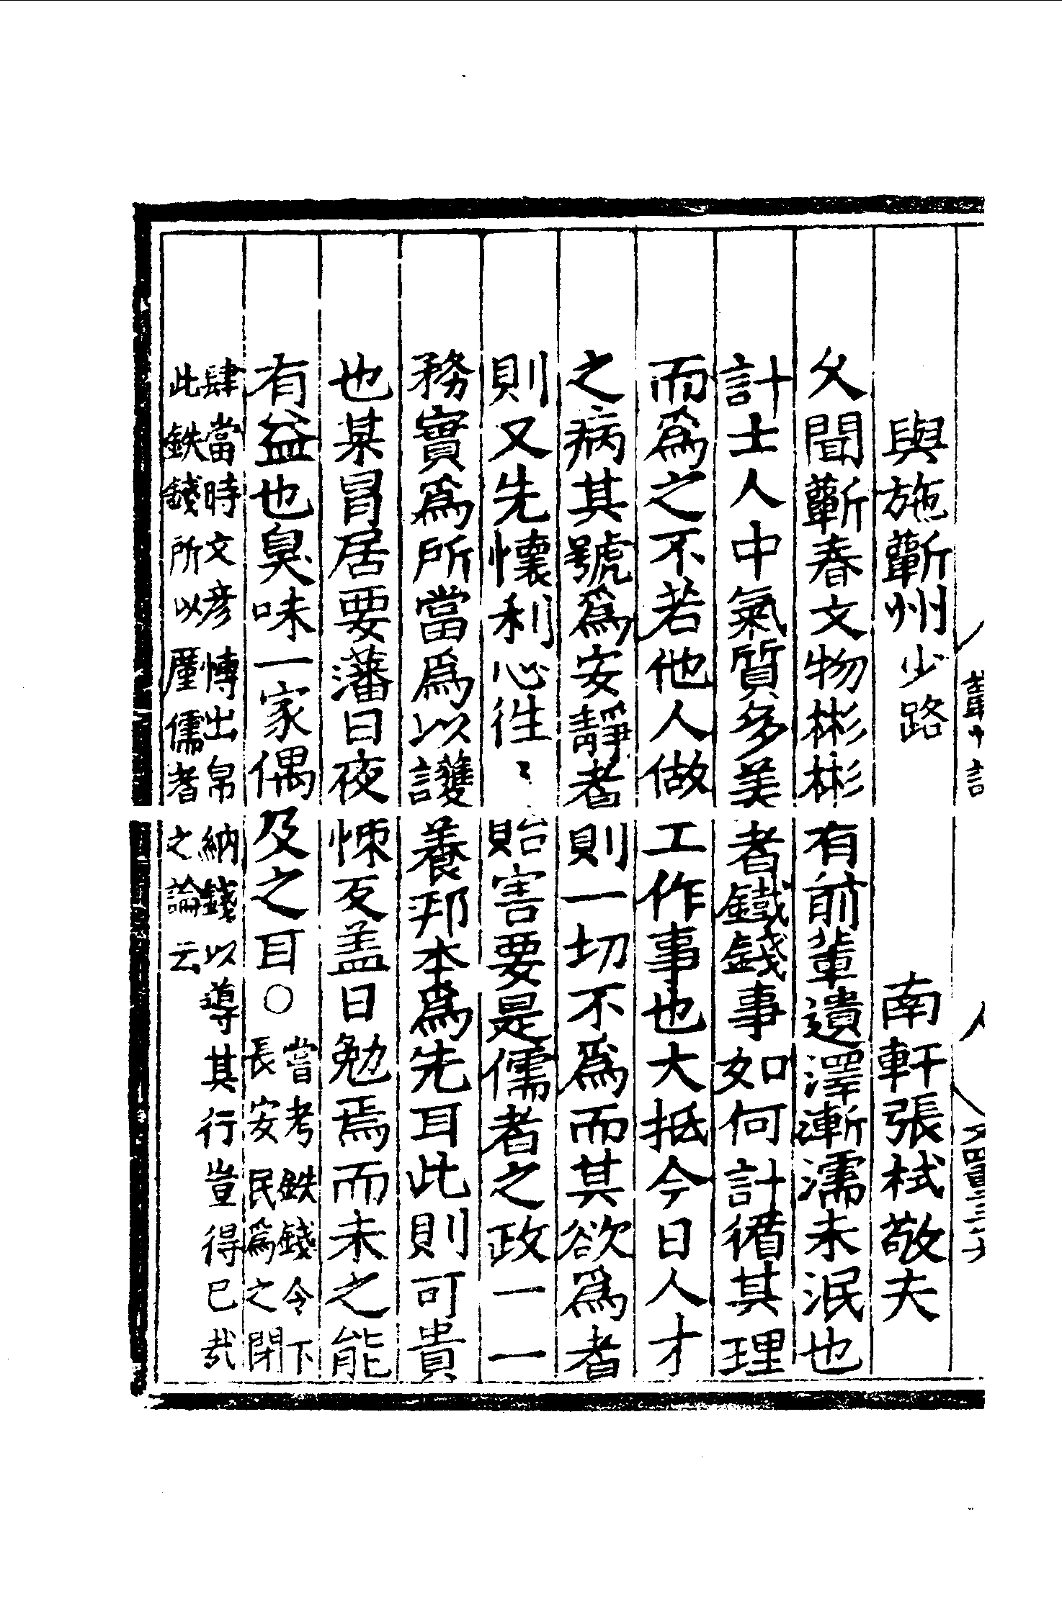 與施蘄州少路　南軒張栻敬夫
久聞蘄春文物彬彬有前輩遺澤漸濡未泯也
計士人中氣質多美者鐵錢事如何計循其理
而爲之不若他人做工作事也大抵今日人才
之病其號爲安靜者則一切不爲而其欲爲者
則又先懷利心徃〻貽害要是儒者之政一一
務實爲所當爲以護養邦本爲先耳此則可貴
也某冒居要藩日夜悚仄盖日勉焉而未之能
有益也臭味一家偶及之耳○當考鉄錢令下長安民爲之閉
肆當時文彦愽出帛納錢以導其行豈得已㦲
此鉄錢所以厪儒者之論云